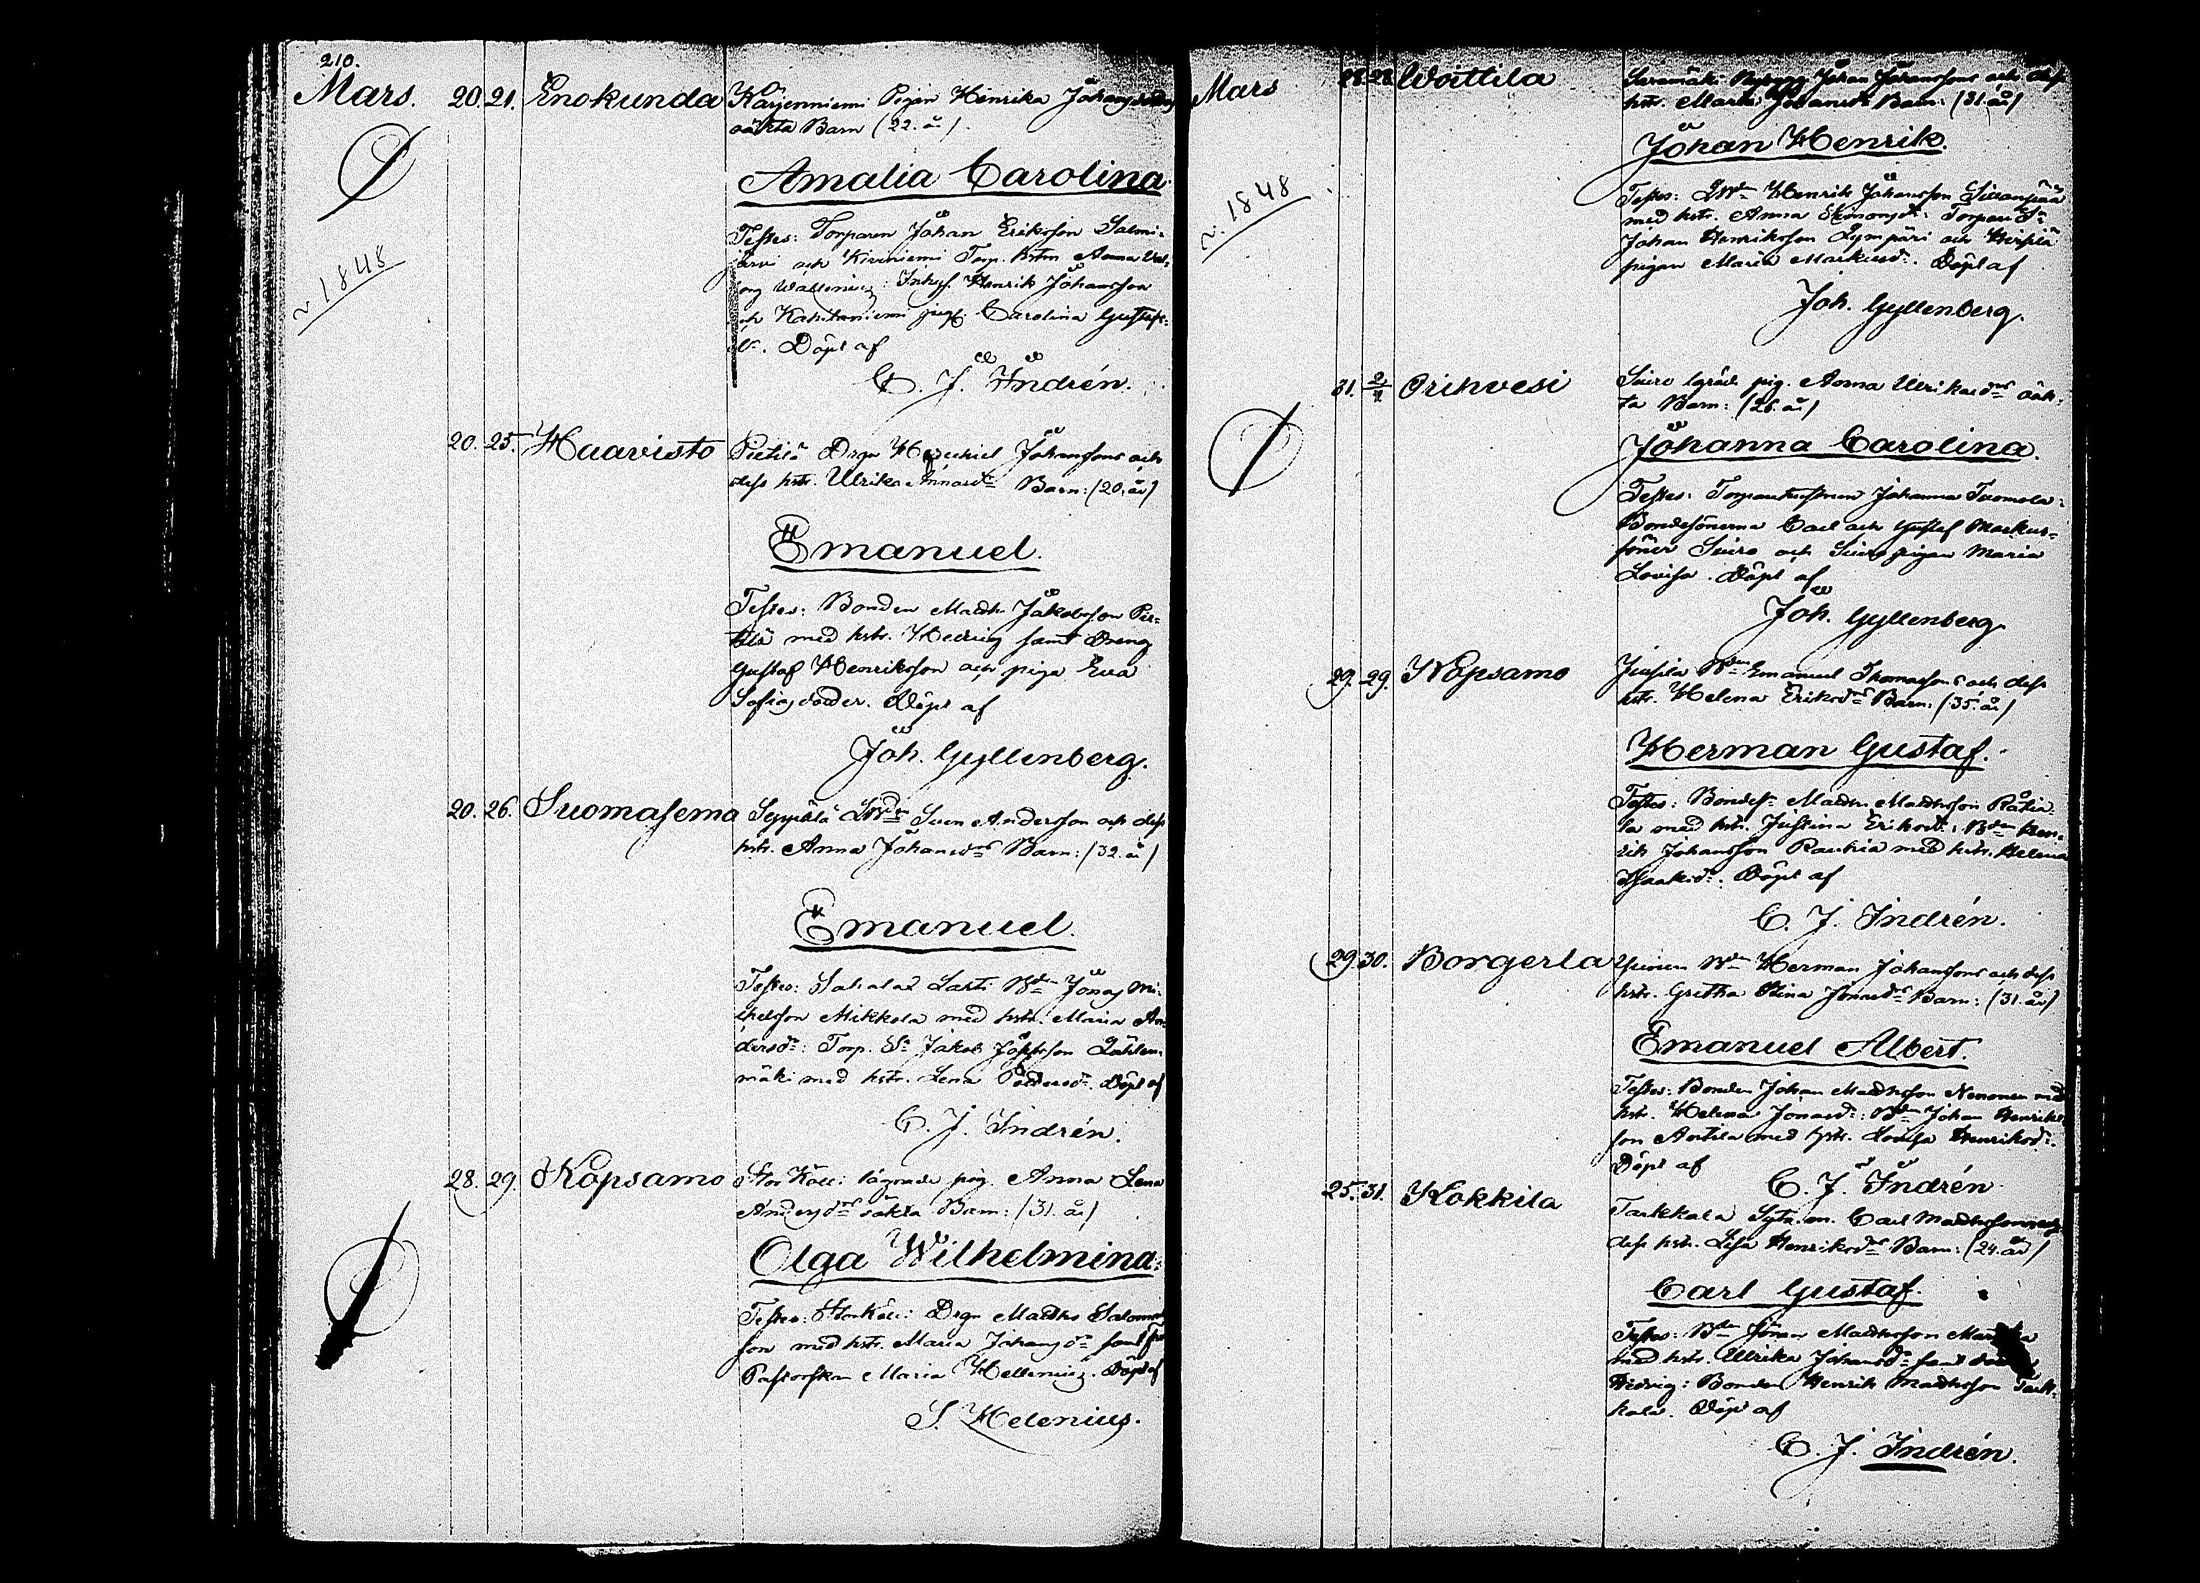 210.
Mars. 20. 21. Enokunda Karjenniemi Pigan Henrika Johansdotters
oäkta Barn (22. år).
Amalia Carolina
Testes: Torparen Johan Eriksson Salmi-
järvi och Kirriniemi Torp. hstrn Anna
Wallenius: Inhys. Henrik Johansson
och pig. Carolina Gustafs-
dr. Döpt af
C. J. Indrén.
v. 1848
20. 25. Haavisto Pietilä Drgn Hezechiel Johanssons och
dess hstr. Ulrika Annasdrs Barn: (20. år)
Emanuel.
Testes: Bonden Matth. Jakobsson Pie-
tilä med hstr. Hedvig samt Dreng
Gustaf Henriksson och piga Eva
Sofiasdotter. Döpt af
Joh. Gyllenberg.
20. 26. Suomasema Seppälä Sven Andersson och dess
hstr. Anna Johansdrs Barn: (32. år)
Emanuel.
Testes: Sahalax Lahti Bdn Jonas Mi-
chelsson Mikkola med hstr. Maria An-
dersdr: Torp. Sn Jakob
mäki med hstr. Lena Pettersdr. Döpt af
C. J. Indrén.
28. 29. Kopsamo Stor Käll: lägrade pig. Anna Lena
Andersdrs oäkta Barn: (31. år)
Olga Wilhelmina.
Testes: Stor Käll: Drgn Matths Salomons-
son med hstr. Maria Johansdr samt
Pastorskan Maria Hellenius. Döpt af
S. Helenius.
Mars 28. Woittila Johan Johanssons och dess
hstr. Maria Johansdrs Barn: (31. år)
Johan Henrik.
Testes: Henrik Johansson
med hstr. Anna Simonsdr: Torpare Sn
Johan Henriksson Lympäri och
pigan Maria Markusdr. Döpt af
Joh. Gyllenberg.
v. 1848
31. 2/4 Orihvesi Siuro lgrad pig. Anna Ulrikasdrs oäk-
ta Barn: (26. år)
Johanna Carolina.
Testes: Torparehustrun Johanna Tuomola:
Bondesönerna Carl och Gustaf Markus-
söner Siuro och Siuro pigan Maria
Lovisa. Döpt af
Joh. Gyllenberg.
29. 29. Kopsamo Jussila Bdn Emanuel Thomassons och dess
hstr. Helena Eriksdrs Barn: (35. år)
Herman Gustaf.
Testes: Bondes. Matths Matthsson
med hstr. Justina Eriksdr: Bdn Hen-
rik Johansson Rauhia med hstr. Helena
Isaksdr. Döpt af
C. J. Indrén.
29. 30. Borgerla Bdn Herman Johanssons och dess
hstr. Gretha Stina Jonasdrs Barn: (31. år)
Emanuel Albert.
Testes: Bonden Johan Matthsson Nenonen med
hstr. Helena Jonasdr: Bdn Johan Henriks-
son Antila med hstr. Lovisa Henriksdr.
Döpt af
C. J. Indrén
25. 31. Kokkila Tarkkala Carl Matthssons och
dess hstr. Lisa Henriksdrs Barn: (24. år)
Carl Gustaf.
Testes: Bdn Matthsson
med hstr. Ulrika Johansdr samt
Hedvig: Bonden Henrik Matthsson Tark-
kala. Döpt af
C. J. Indrén.